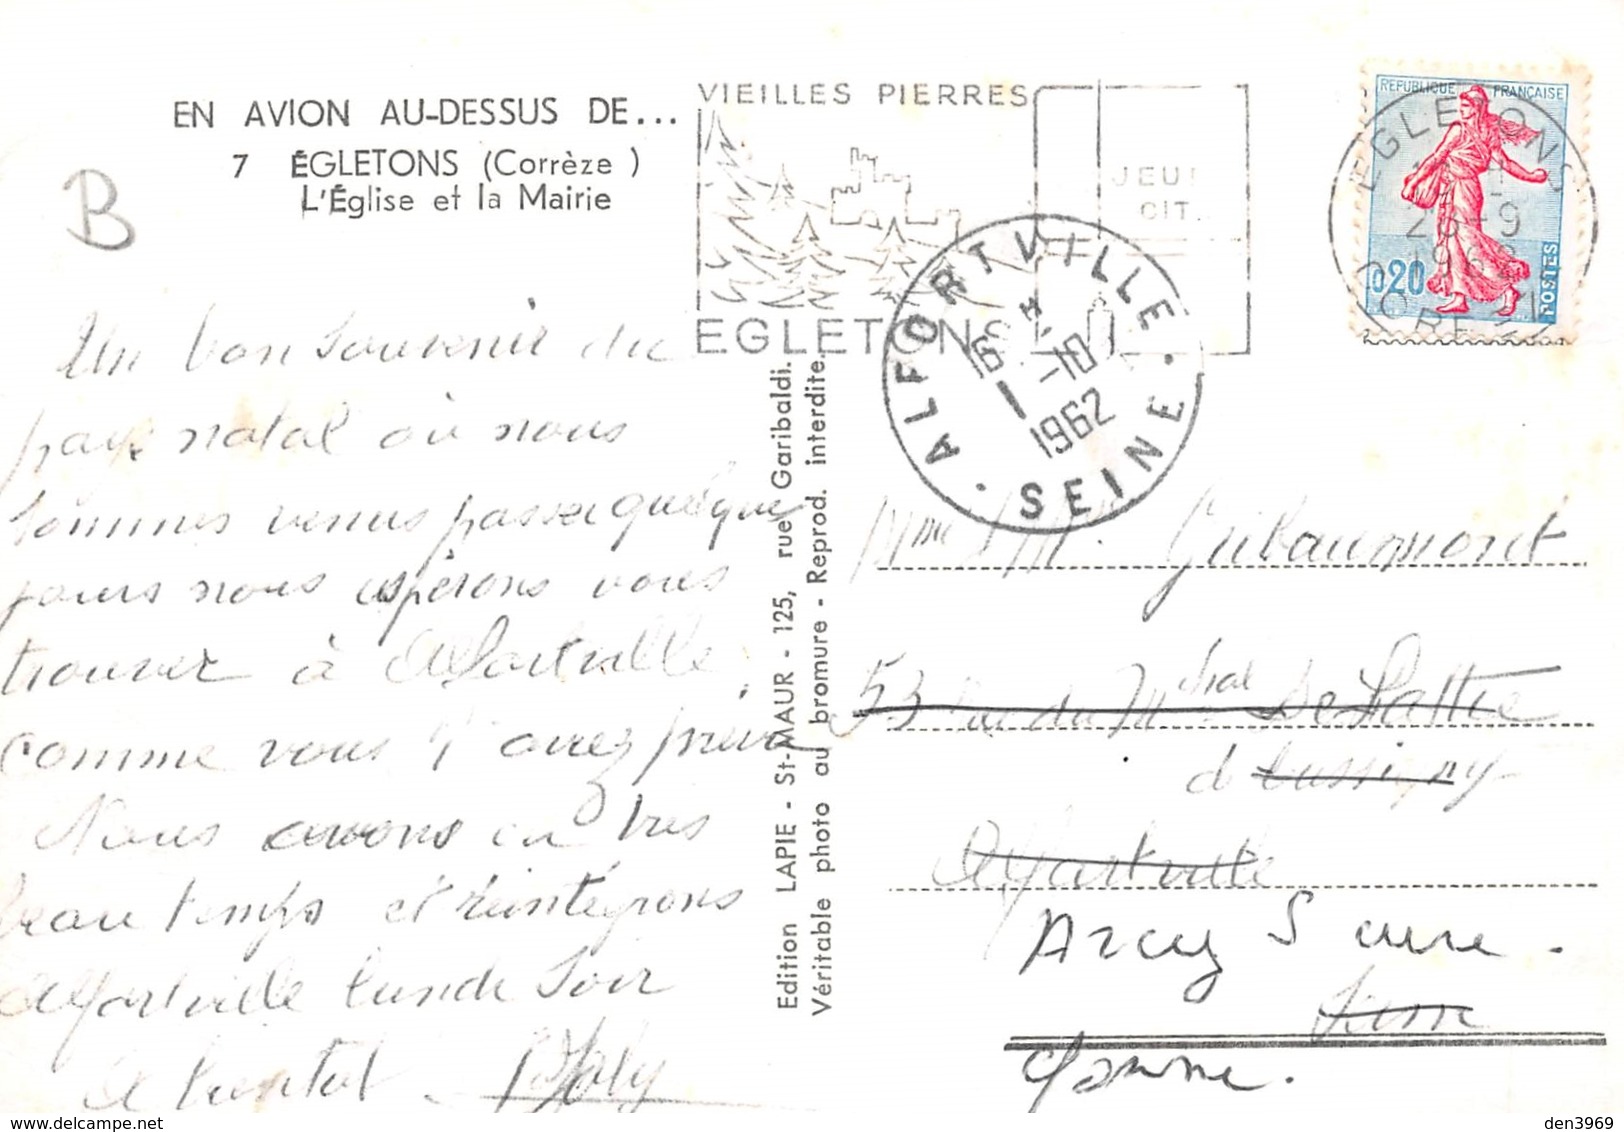 EN AVION AU-DESSUS DE...
7 ÉGLETONS (Corrèze)
L'Église et la Mairie
B
VIEILLES PIERRES
JEU
CIT
EGLETONS
REPUBLIQUE FRANÇAISE
0,20
POSTES
EGLETONS
-9
1962
CORREZE
ALFORTVILLE
16 H
1 -10
1962
SEINE
Un bon souvenir du
pays natal où nous
sommes venus passer quelques
jours nous espérons vous
trouver à Alfortville,
comme vous l'aviez prévu
Nous avons eu très
beau temps et réintégrons
Alfortville lundi soir
A bientôt
Edition LAPIE - St-MAUR - 125, rue Garibaldi.
Véritable photo au bromure - Reprod. interdite.
Mme M.
53 Rue du Mchal De Lattre
d Tassigny
Alfortville
Arcy S Cure
Seine
Yonne.
den3969